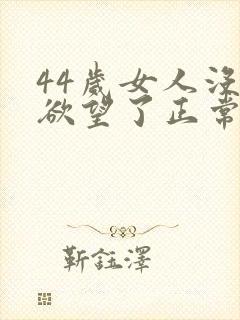 44歲女人沒
欲望了正常
靳鈺澤